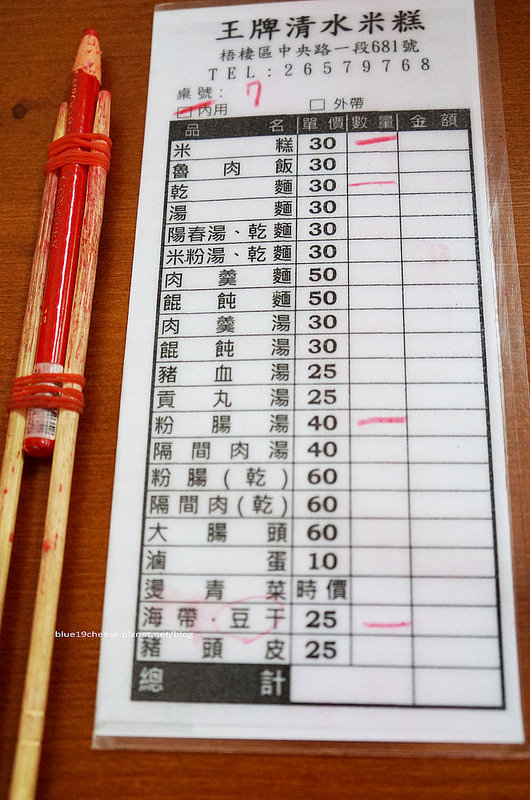 王牌清水米糕
梧棲區中央路一段681號
TEL:26579768
桌號: 7
□內用 □外帶
品名 單價 數量 金額
米糕 30 一
魯肉飯 30
乾麵 30 一
湯麵 30
陽春湯、乾麵 30
米粉湯、乾麵 30
肉羹麵 50
餛飩麵 50
肉羹湯 30
餛飩湯 30
豬血湯 25
貢丸湯 25
粉腸湯 40 一
隔間肉湯 40
粉腸(乾) 60
隔間肉(乾) 60
大腸頭 60
滷蛋 10
燙青菜 時價
海帶.豆干 25 一
豬頭皮 25
總計
blue19cheese.pixnet.net/blog